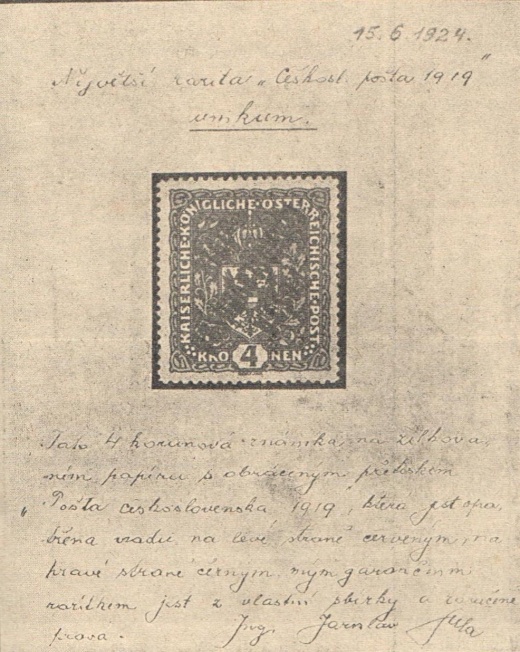 15.6.1924.
Největší rarita „Českosl. pošta 1919"
unikum.
KAISERLICHE·KÖNIGLICHE·ÖSTERREICHISCHE·POST
KRO 4 NEN
Tato 4 korunová známka, na žilkova-
ném papíru s obráceným přetiskem
„Pošta československá 1919", která jest opa-
třena vzadu na levé straně červeným, na
pravé straně černým mým garančním
razítkem jest z vlastní sbírky a zaručeně
pravá.
Ing. Jaroslav